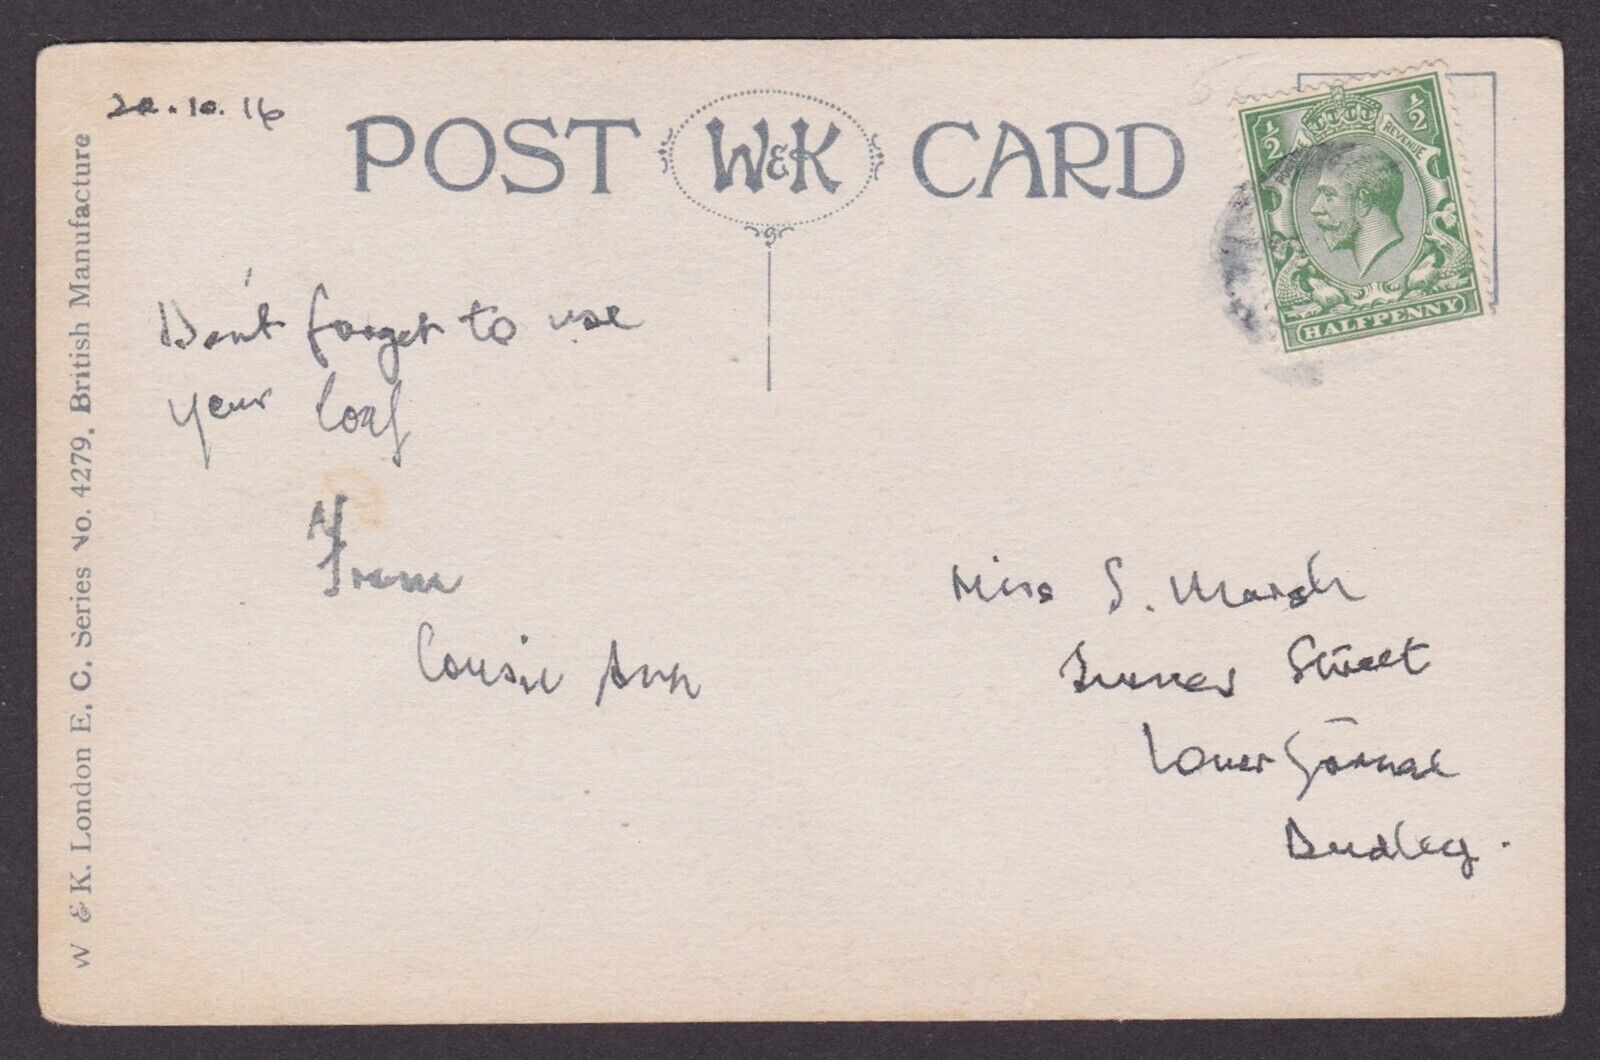 20.10.16
POST W&K CARD
½ ½
REVENUE
HALFPENNY
Don't forget to use
your loaf
From
Cousin Ann
Miss S. Marsh
Turner Street
Lower Gornal
Dudley.
W & K. London E. C. Series No. 4279. British Manufacture